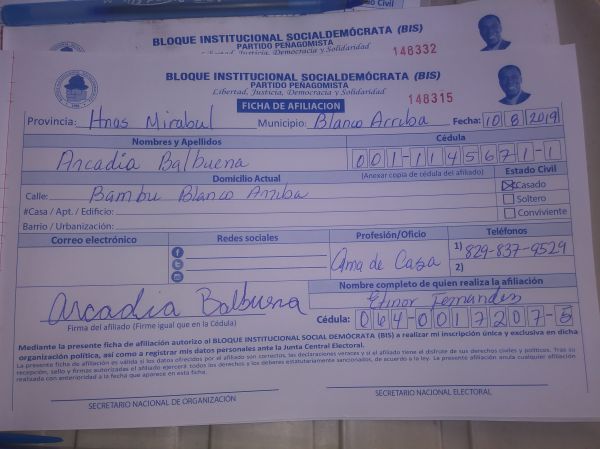 Estado Civil
BLOQUE INSTITUCIONAL SOCIALDEMÓCRATA (BIS)
PARTIDO PEÑAGOMISTA
Libertad, Justicia, Democracia y Solidaridad
148332
BLOQUE INSTITUCIONAL SOCIALDEMÓCRATA (BIS)
PARTIDO PEÑAGOMISTA
Libertad, Justicia, Democracia y Solidaridad
148315
FICHA DE AFILIACION
Provincia: Hnas Mirabul Municipio: Blanco Arriba Fecha: 10/8/2019
Nombres y Apellidos Cédula
Arcadia Balbuena 001-1145671-1
Domicilio Actual (Anexar copia de cédula del afiliado) Estado Civil
Calle: Bambu Blanco Arriba Casado
#Casa / Apt. / Edificio: Soltero
Barrio / Urbanización: Conviviente
Correo electrónico Redes sociales Profesión/Oficio Teléfonos
Ama de Casa 1) 829-837-9529
2)
Nombre completo de quien realiza la afiliación
Arcadia Balbuena Fernandez
Firma del afiliado (Firme igual que en la Cédula) Cédula: 064-0017207-5
Mediante la presente ficha de afiliación autorizo al BLOQUE INSTITUCIONAL SOCIAL DEMÓCRATA (BIS) a realizar mi inscripción única y exclusiva en dicha
organización política, así como a registrar mis datos personales ante la Junta Central Electoral.
La presente ficha de afiliación es válida si los datos ofrecidos por el afiliado son correctos, las declaraciones veraces y si el afiliado tiene el disfrute de sus derechos civiles y políticos. Tras su
recepción, sello y firmas autorizadas el afiliado ejercerá todos los derechos y los deberes estatutariamente sancionados, de acuerdo a la ley. La presente afiliación anula cualquier afiliación
realizada con anterioridad a la fecha que aparece en esta ficha.
SECRETARIO NACIONAL DE ORGANIZACIÓN SECRETARIO NACIONAL ELECTORAL